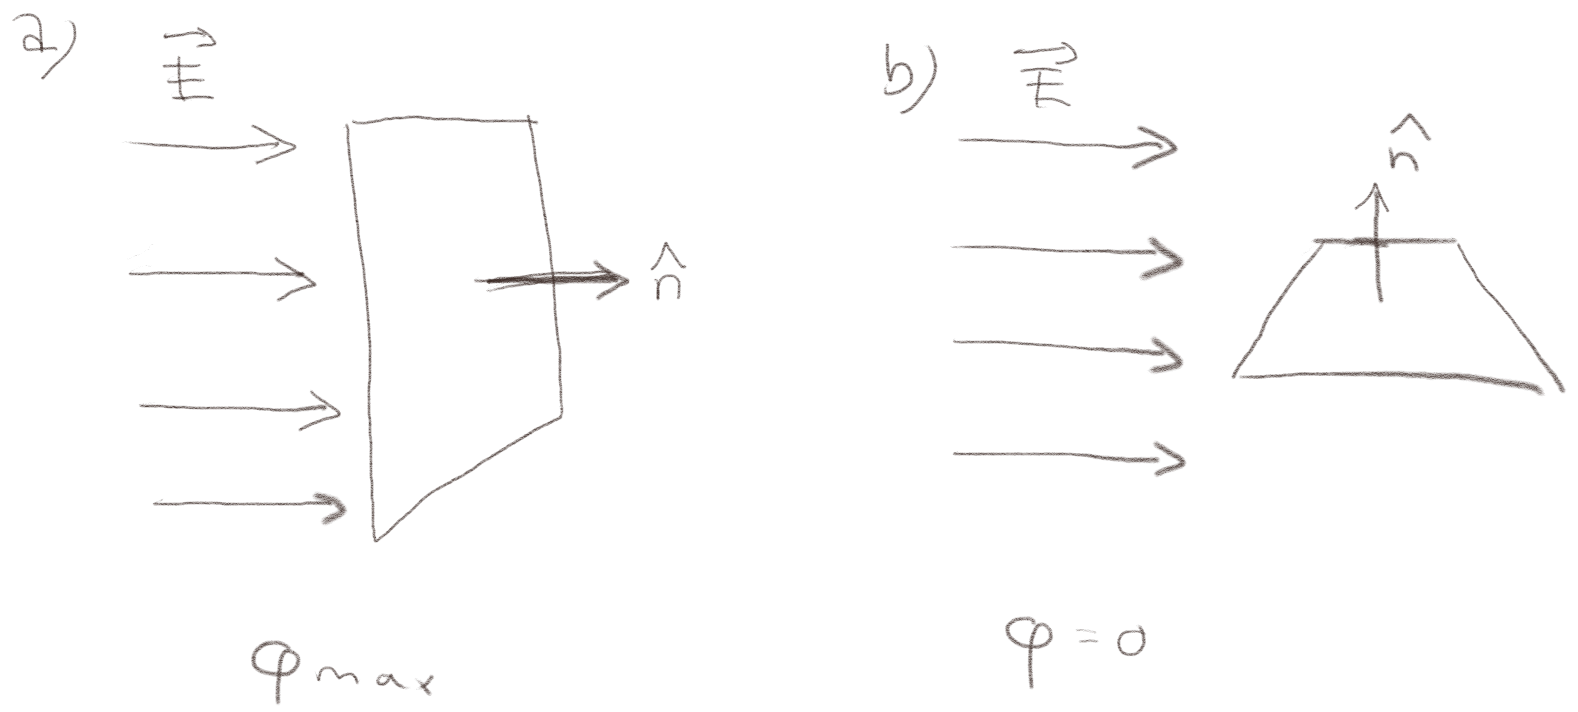 a)
E⃗
n̂
φ max
b)
E⃗
n̂
φ = 0